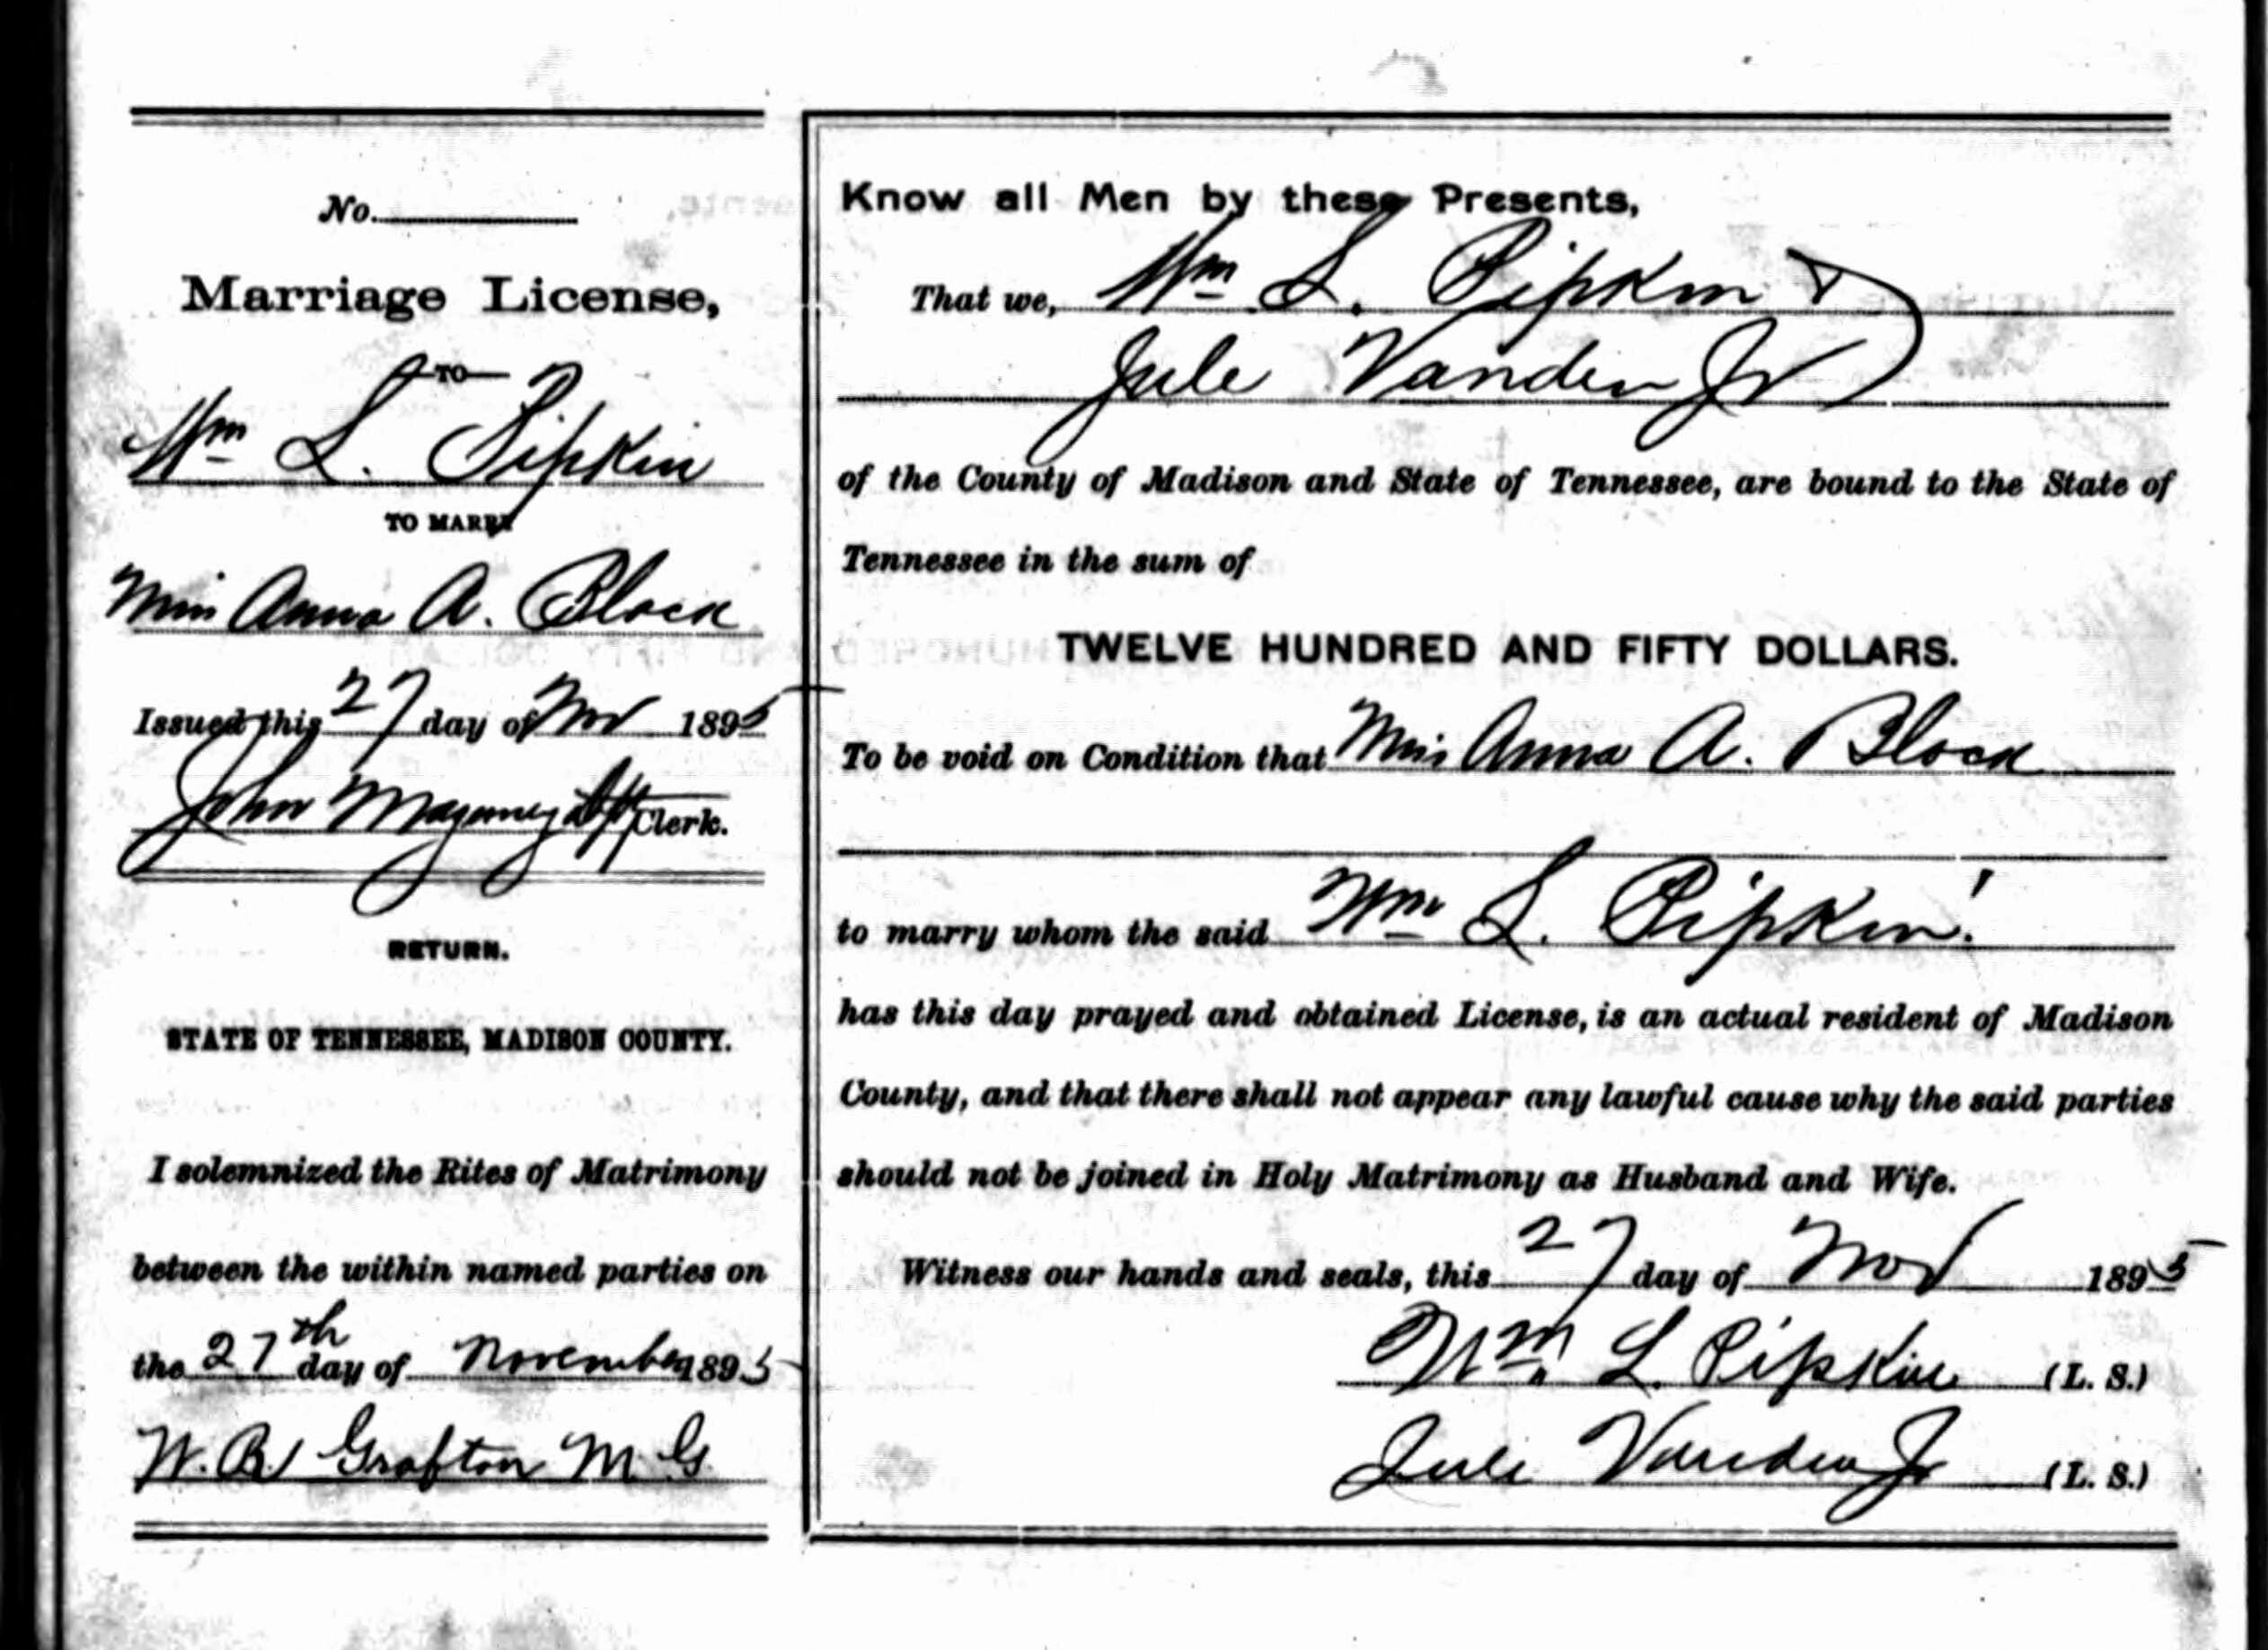 No.
Marriage License,
TO
Wm L. Pipkin
TO MARRY
Miss Anna A. Block
Issued this 27 day of Nov 1895
John Clerk.
RETURN.
STATE OF TENNESSEE, MADISON COUNTY.
I solemnized the Rites of Matrimony
between the within named parties on
the 27th day of November 1895
W. B. Grafton M G
Know all Men by these Presents,
That we, Wm L. Pipkin &
Jule Vanden Jr
of the County of Madison and State of Tennessee, are bound to the State of
Tennessee in the sum of
TWELVE HUNDRED AND FIFTY DOLLARS.
To be void on Condition that Miss Anna A. Block
to marry whom the said Wm L. Pipkin
has this day prayed and obtained License, is an actual resident of Madison
County, and that there shall not appear any lawful cause why the said parties
should not be joined in Holy Matrimony as Husband and Wife.
Witness our hands and seals, this 27 day of Nov 1895
Wm. L. Pipkin (L. S.)
Jule Vanden Jr (L. S.)